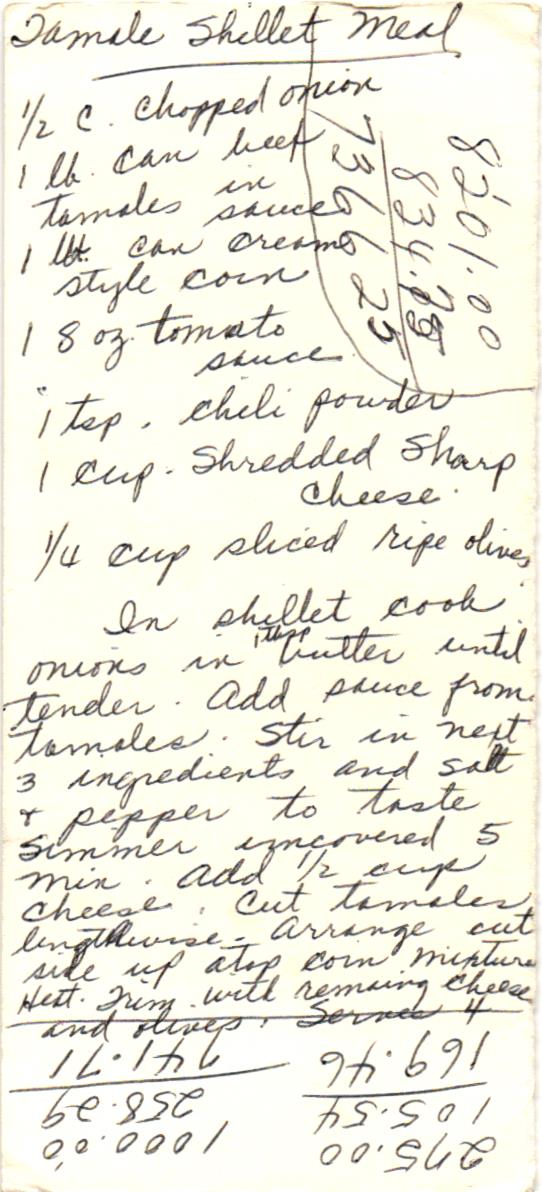 Tamale Skillet Meal
1/2 c. chopped onion
1 lb. can beef
tamales in
sauce
1 lb. can cream
style corn
1 8 oz. tomato
sauce
1 tsp. chili powder
1 cup. Shredded Sharp
Cheese.
1/4 cup sliced ripe olives
In skillet cook
onions in 1 tbsp butter until
tender. Add sauce from
tamales. Stir in next
3 ingredients and salt
+ pepper to taste
Simmer uncovered 5
min. Add 1/2 cup
cheese. Cut tamales
lengthwise. Arrange cut
side up atop corn mixture
Heat. Trim with remaing cheese
and olives. Serves 4
8201.00
834.75
7366.25
1000.00
258.29
741.71
275.00
105.54
169.46